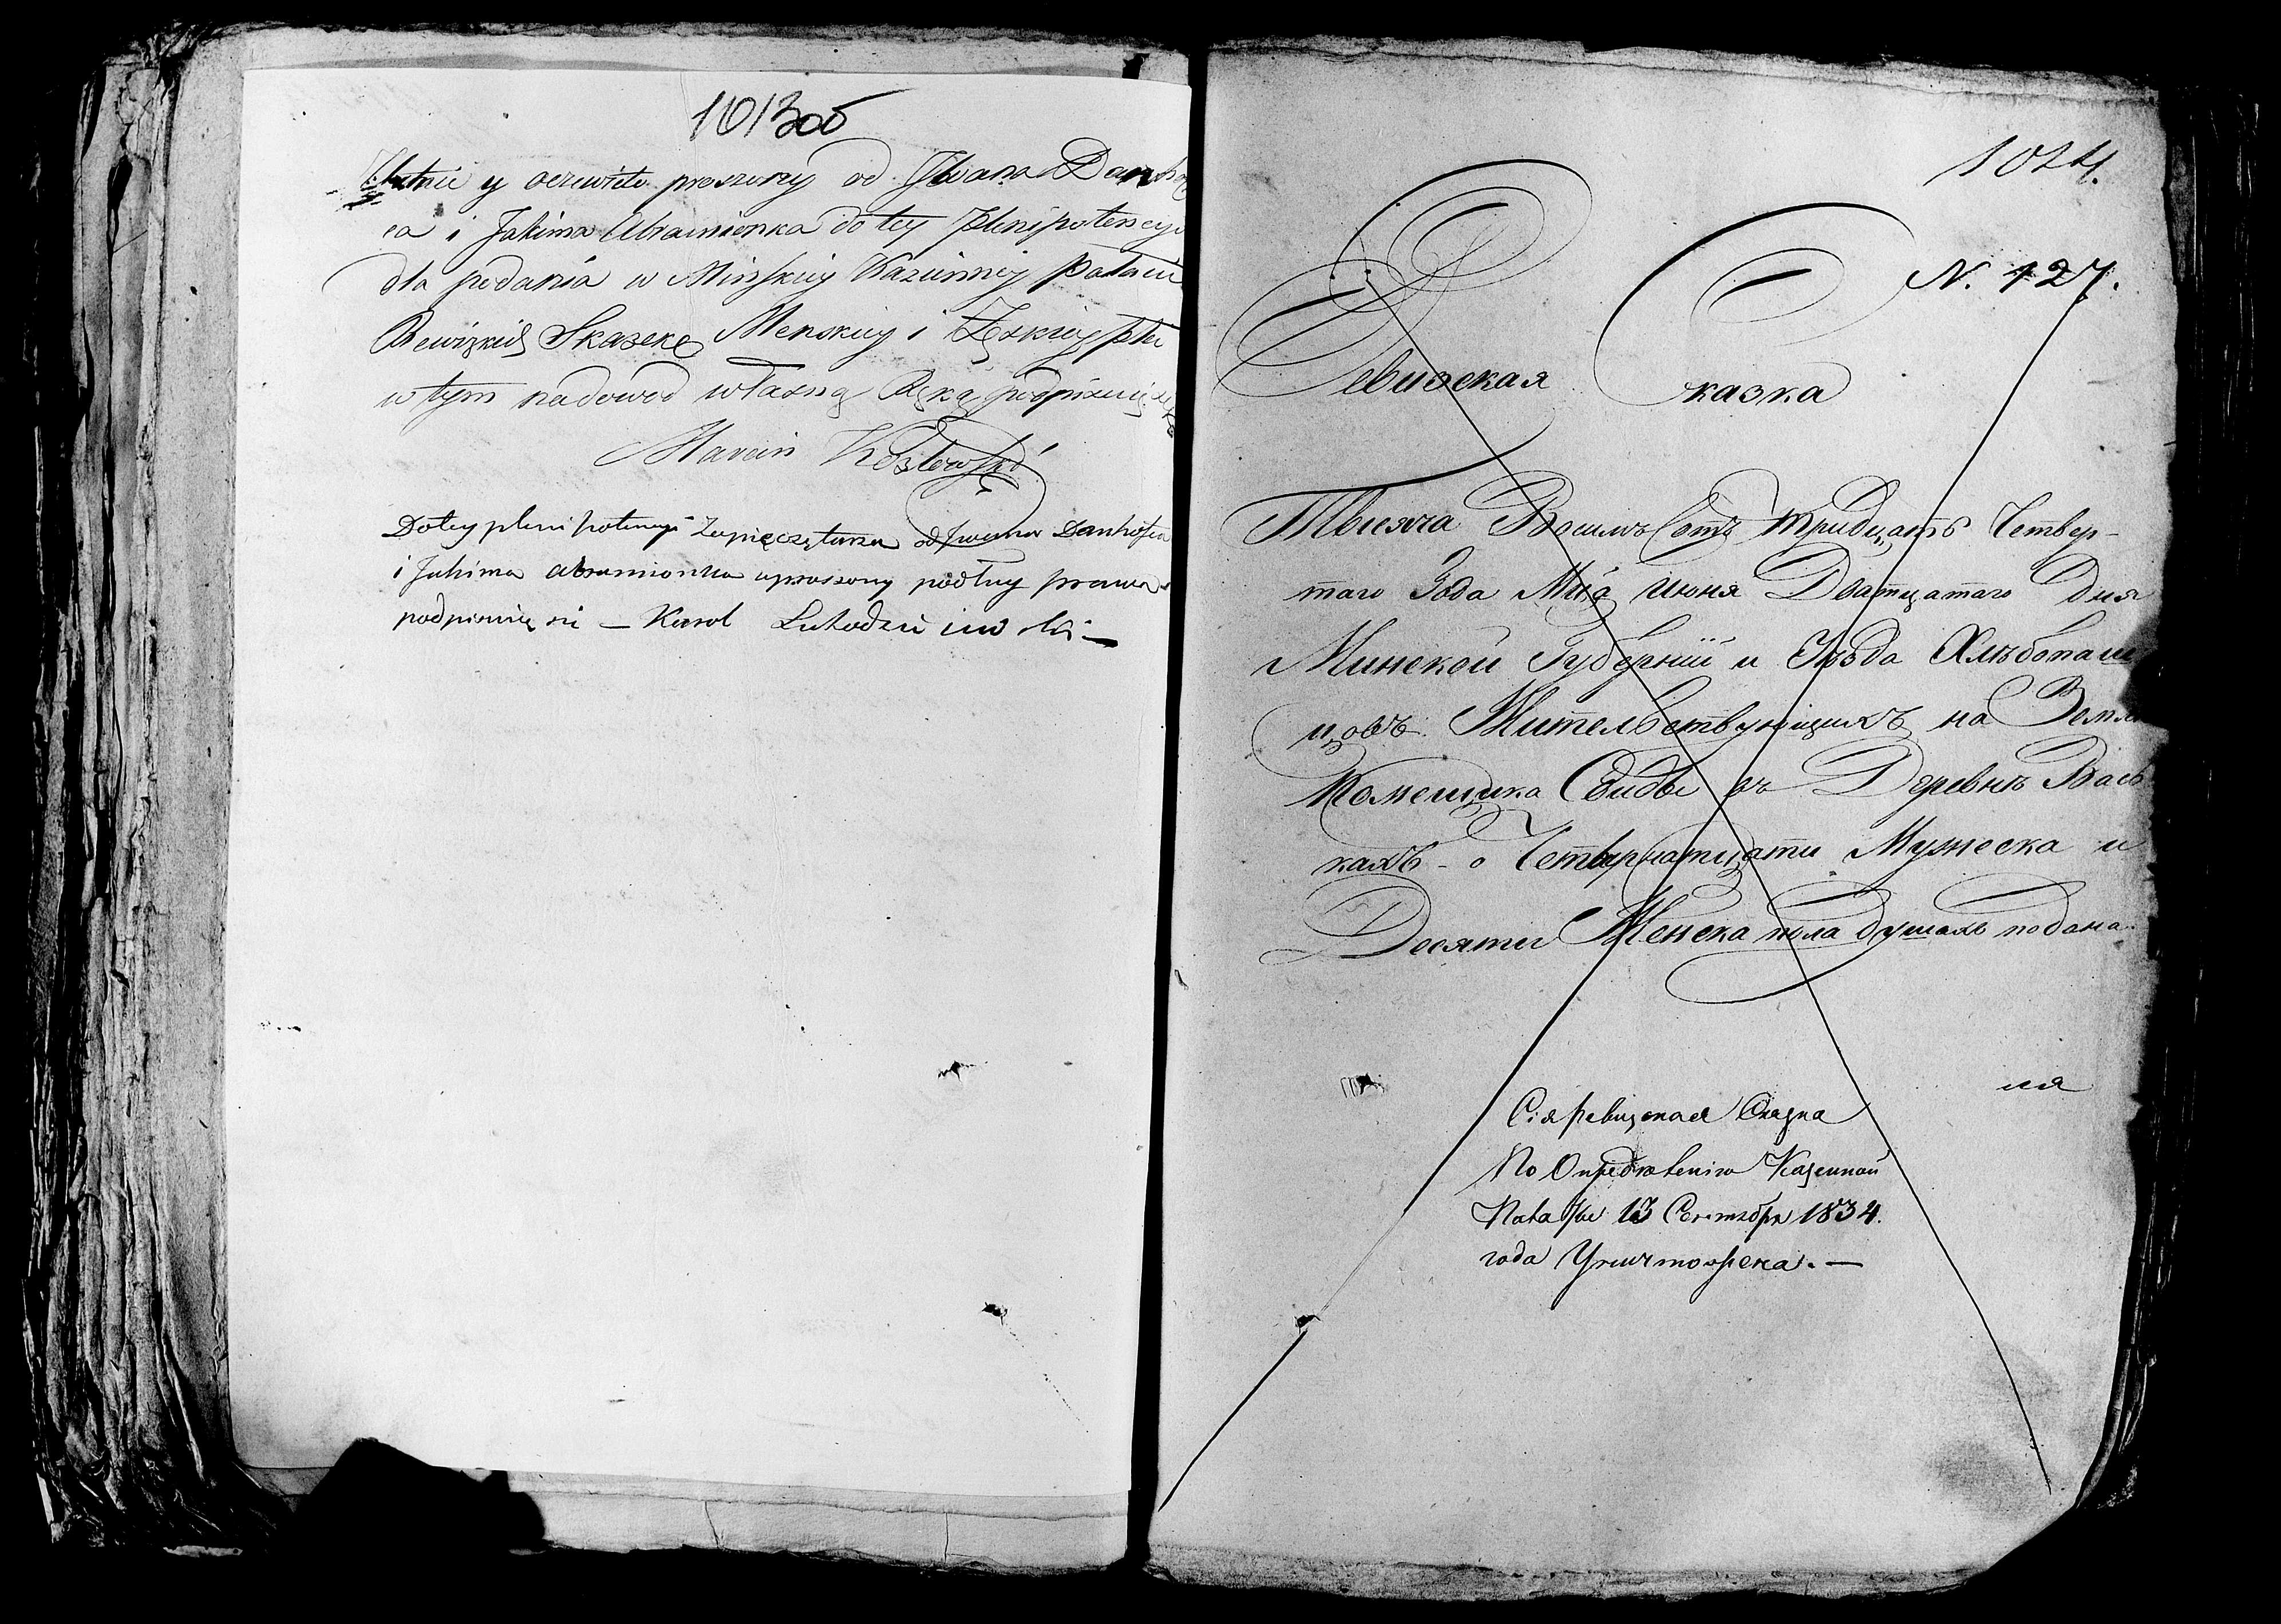 1013об
Ustnie y oczewiście proszony od Jwana Danko
ca i Jakima Abramionka do tey Plenipotencyi
dla podania w Minskiey Kazionney Pałacie
Rewizkich Skazek Menskiey i Żeskiey płci
w tym na dowod własną Ręką podpisuię się
Marcin Kozłowski
Do tey plenipotencyi Zapieczętarza od Jwana Dankofca
i Jakima abramionka uproszony podług prawa
podpisuię się — Karol
1014.
N. 127.
Ревизская Сказка
Тысяча Восимъ Сотъ тридцать Четвер-
таго Года Мца Июня Дватцатаго Дня
Минской Губерніи и Уезда Хлебопаш
цовъ Жительствующихъ на Земли
Помещика Свиды въ Деревнѣ Вась
кахъ - о Четырнатцати Мужеска и
Десяти Женска пола душахъ подана
ся
Сія ревизская Сказка
По Определенію Казенной
Палаты 13 Сентября 1834.
года Уничтожена. —